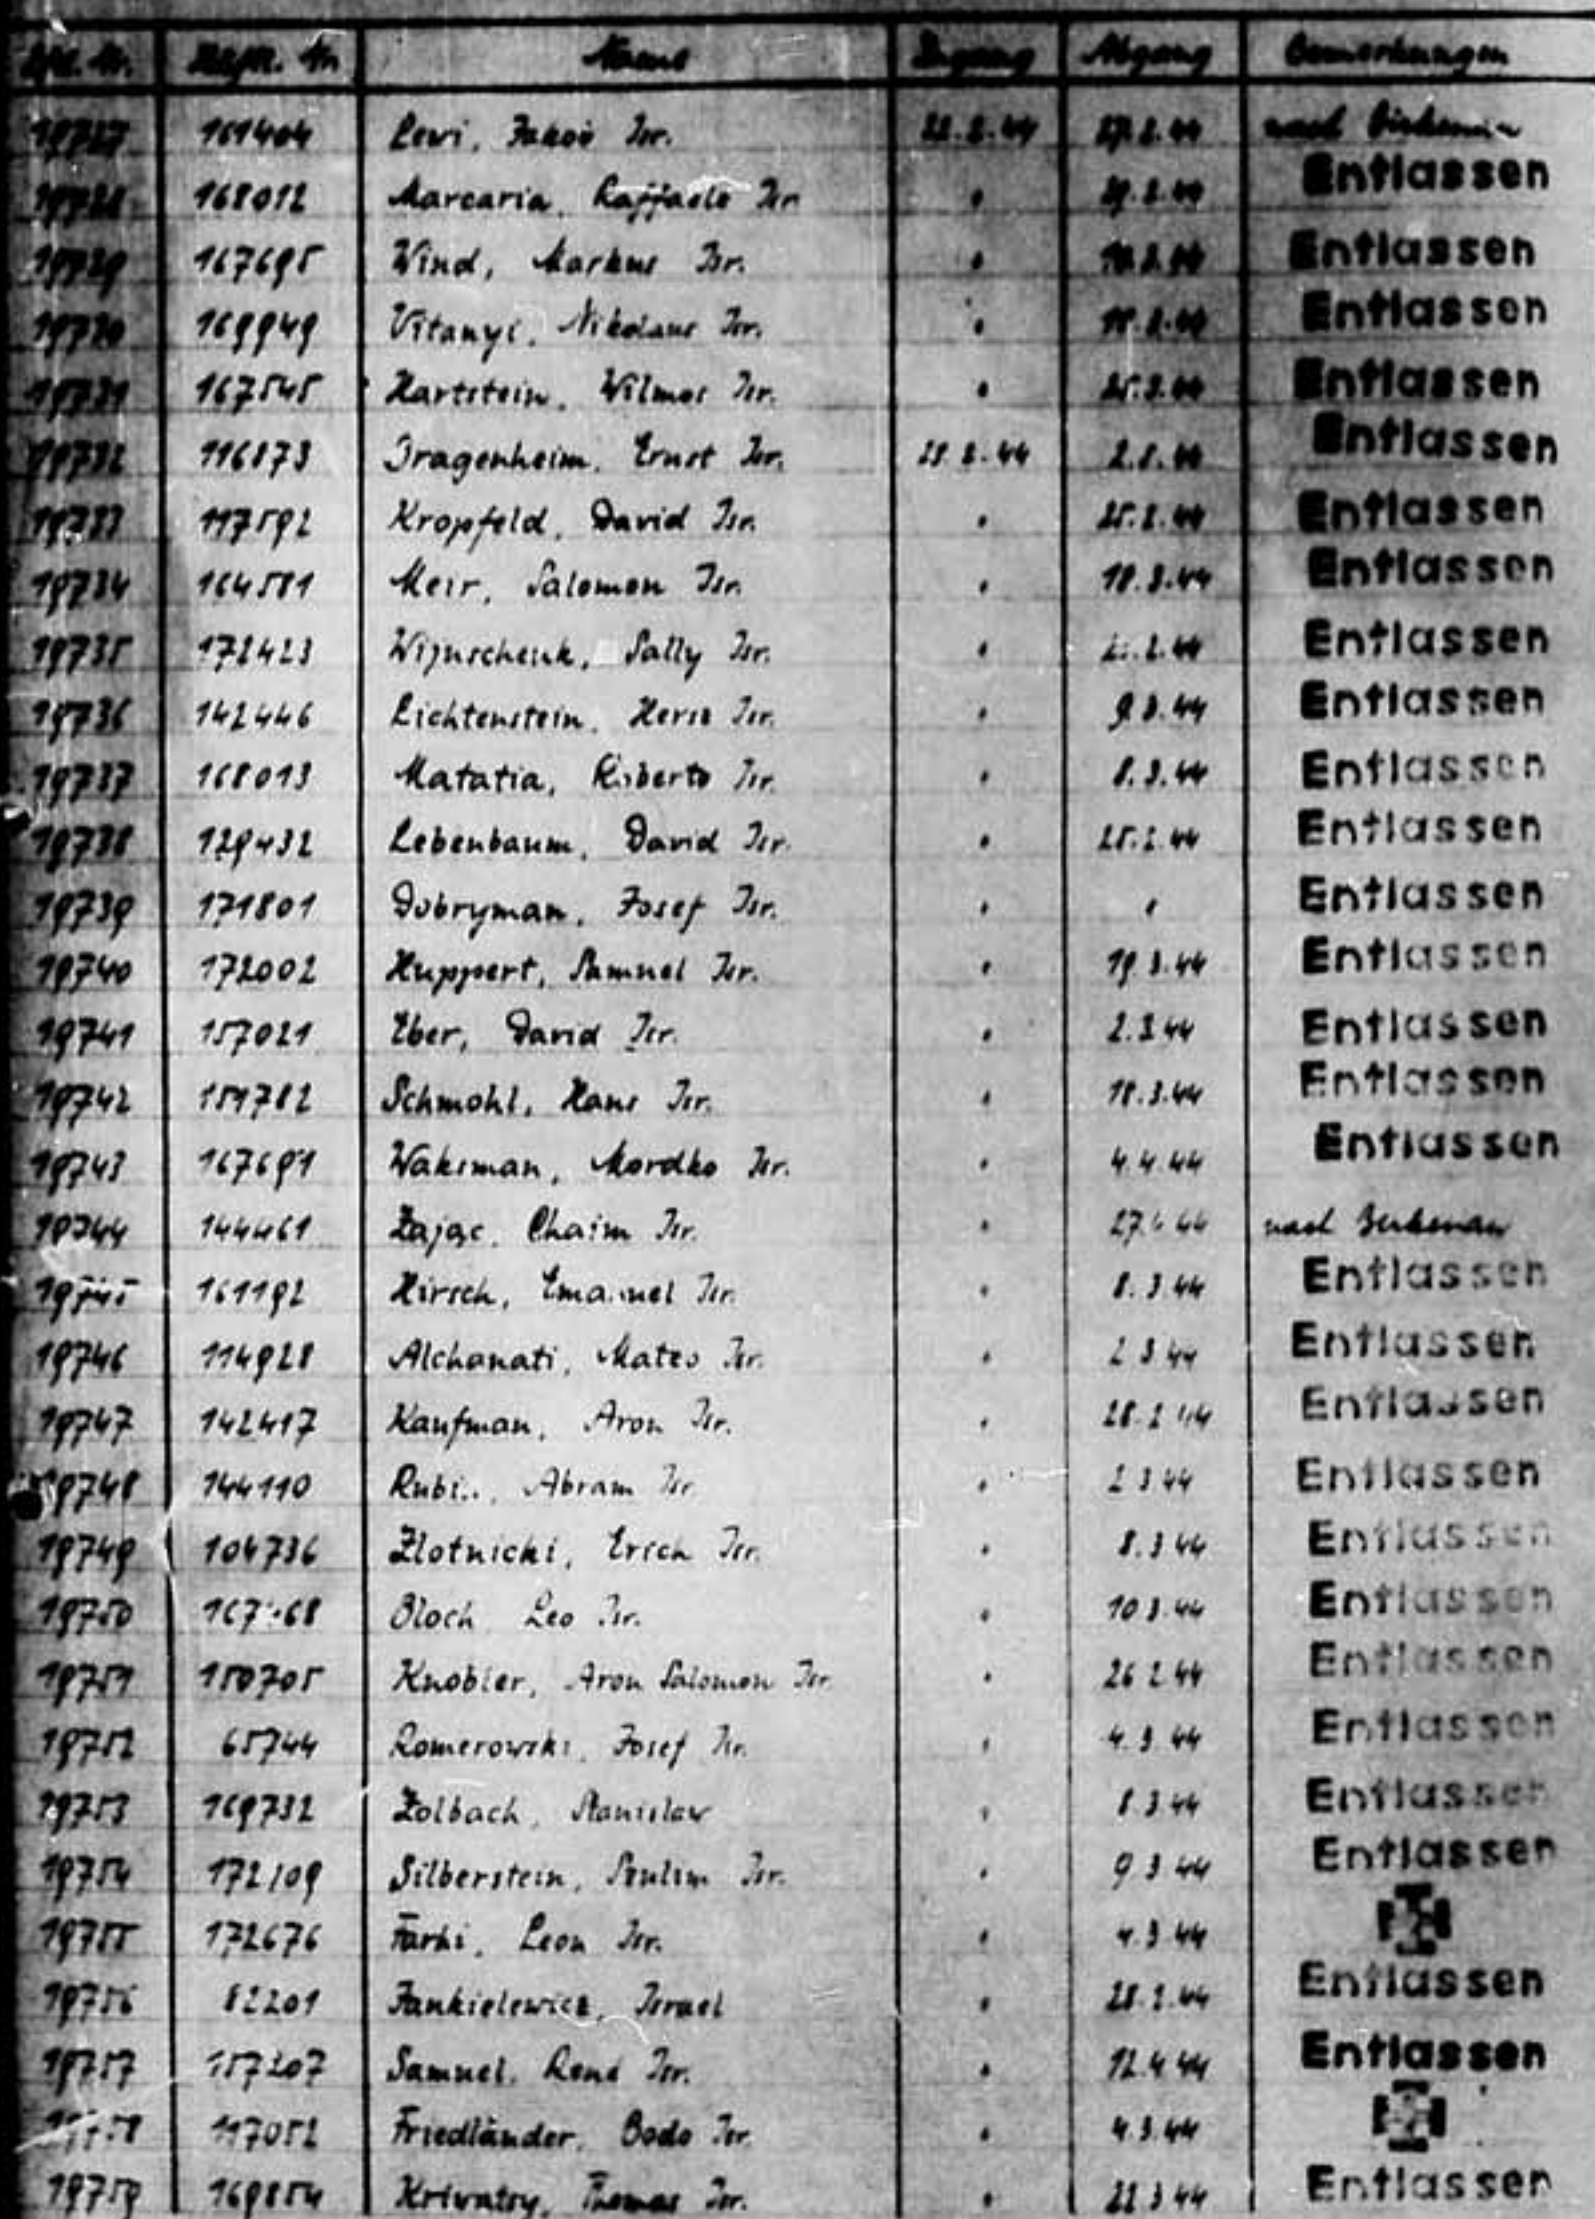 Name Zugang Abgang Bemerkungen
19727 161404 Lewi, Jakob Isr. 22.2.44 27.2.44 nach Birkenau
19728 168012 Marcaria, Raffaele Isr. " Entlassen
19729 167695 Wind, Markus Isr. " Entlassen
19730 169949 Vitanyi, Nikolaus Isr. " Entlassen
19731 167545 Hartstein, Wilmos Isr. " Entlassen
19732 116873 Dragenheim, Ernst Isr. Entlassen
19733 117592 Kropfeld, David Isr. " 25.2.44 Entlassen
19734 164581 Meir, Salomon Isr. " 18.3.44 Entlassen
19735 172423 Wijnschenk, Sally Isr. " Entlassen
19736 142446 Lichtenstein, Hersz Isr. " 9.3.44 Entlassen
19737 168013 Matatia, Roberto Isr. " 8.3.44 Entlassen
19738 129432 Lebenbaum, David Isr. " 25.2.44 Entlassen
19739 171801 Dobryman, Josef Isr. " " Entlassen
19740 172002 Huppert, Samuel Isr. " 19.3.44 Entlassen
19741 157021 Eber, David Isr. " 2.3.44 Entlassen
19742 159782 Schmohl, Hans Isr. " 18.3.44 Entlassen
19743 167691 Waksman, Mordko Isr. " 4.4.44 Entlassen
19744 144461 Zajac, Chaim Isr. " nach Birkenau
19745 161192 Hirsch, Emanuel Isr. " 8.3.44 Entlassen
19746 114928 Alchanati, Mateo Isr. " 2.3.44 Entlassen
19747 142417 Kaufman, Aron Isr. " 28.2.44 Entlassen
19748 144110 Abram Isr. " 2.3.44 Entlassen
19749 104736 Zlotnicki, Erich Isr. " 8.3.44 Entlassen
19750 Bloch Leo Isr. " 10.3.44 Entlassen
19751 150705 Knobler, Aron Salomon Isr. " 26.2.44 Entlassen
19752 65744 Romerowski, Josef Isr. " 4.3.44 Entlassen
19753 169732 Zolbach, Stanislaw " 8.3.44 Entlassen
19754 172109 Silberstein, Isr. " 9.3.44 Entlassen
19755 172676 Farhi, Leon Isr. " 4.3.44
19756 82201 Jankielewicz, Israel " 28.2.44 Entlassen
19757 157207 Samuel, René Isr. " 12.4.44 Entlassen
19758 117052 Friedländer, Bodo Isr. " 4.3.44
19759 169854 Krivatsy, Thomas Isr. " 22.3.44 Entlassen